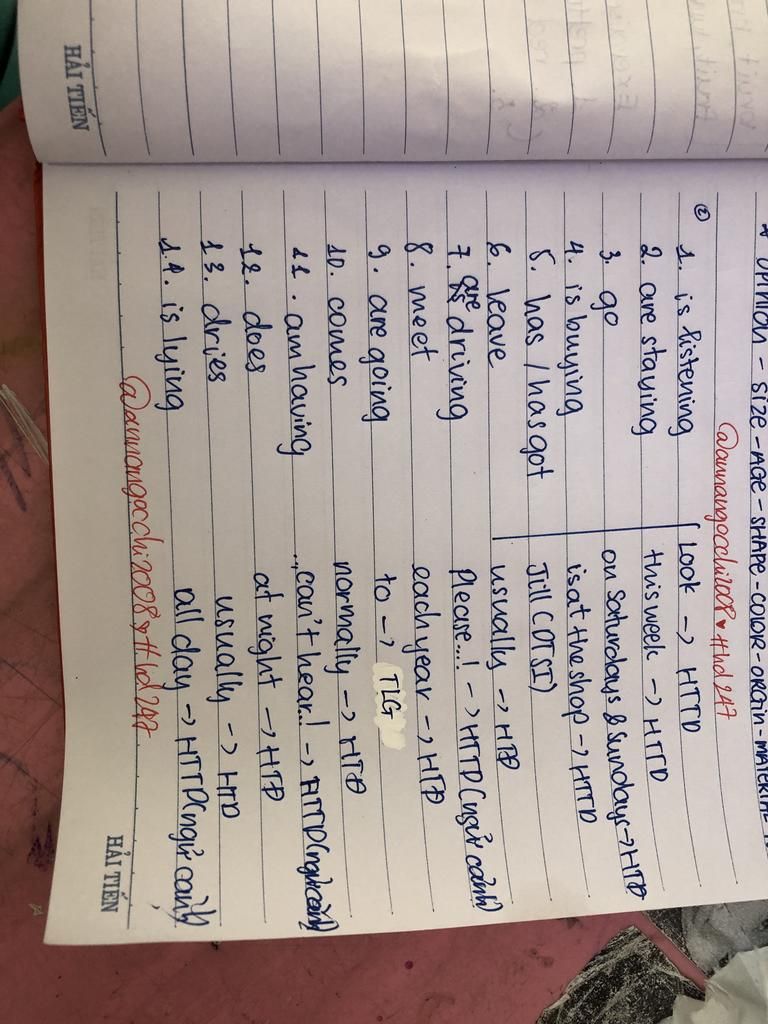 * OPINION - SIZE - AGE - SHAPE - COLOR - ORGIN - MATERIAL
@annangocchi2008 ♥ #hd247
② 1. is listening Look -> HTTD
2. are staying this week -> HTTD
3. go on Saturdays & Sundays -> HTĐ
4. is buying is at the shop -> HTTD
5. has / has got Jill (DTSI)
6. leave usually -> HTĐ
7. are driving Please...! -> HTTD (ngữ cảnh)
8. meet each year -> HTĐ
9. are going to -> TLG
10. comes normally -> HTĐ
11. am having ... can't hear..! -> HTTD (ngữ cảnh)
12. does at night -> HTĐ
13. dries usually -> HTD
14. is lying all day -> HTTD (ngữ cảnh)
@annangocchi2008 ♥ #hd247
HẢI TIẾN
HẢI TIẾN